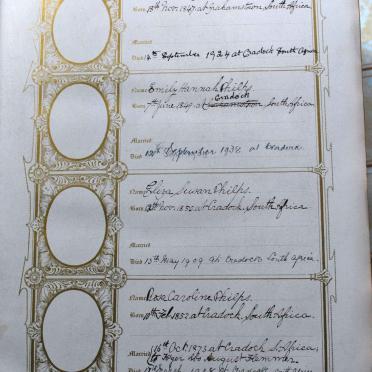 Born 18th Nov. 1847 at Grahamstown, South Africa.
Married
Died September 1924 at Cradock South Africa
Name Emily Hannah Philps.
Cradock
Born 7th June 1849 at Grahamstown South Africa
Married
Died 12th September 1938 at Cradock.
Name Eliza Susan Philps.
Born Nov. 1850 at Cradock, South Africa
Married
Died 13th May 1909 at Cradock South Africa.
Name Rosa Caroline Philps.
Born Feb 1852 at Cradock, South Africa.
Married 16th Oct. 1873 at Cradock, S. Africa,
to August Hemmer.
Died